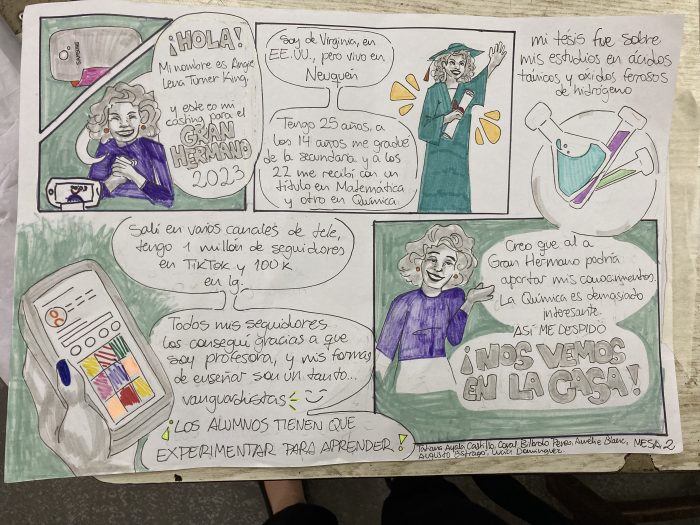 SAMSUNG
¡HOLA!
Mi nombre es Angie
Lena Turner King.
y este es mi
casting para el
GRAN
HERMANO
2023
Soy de Virginia, en
EE.UU., pero vivo en
Neuquén
Tengo 25 años, a
los 14 años me gradué
de la secundaria y a los
22 me recibí con un
título en Matemática
y otro en Química
mi tésis fue sobre
mis estudios en ácidos
taínicos y oxidos ferrosos
de hidrógeno
Salí en varios canales de tele,
tengo 1 millón de seguidores
en TikTok y 100 k
en Ig.
Todos mis seguidores
los conseguí gracias a que
soy profesora, y mis formas
de enseñar son un tanto...
vanguardistas
¡LOS ALUMNOS TIENEN QUE
EXPERIMENTAR PARA APRENDER!
Creo que al a
Gran Hermano podría
aportar mis conocimientos.
La Química es demasiado
interesante.
ASÍ ME DESPIDO
¡NOS VEMOS
EN LA CASA!
Ayala Castillo, Coral Reyes, Amélie Blanc, MESA 2
Augusto Lucía Dominguez.